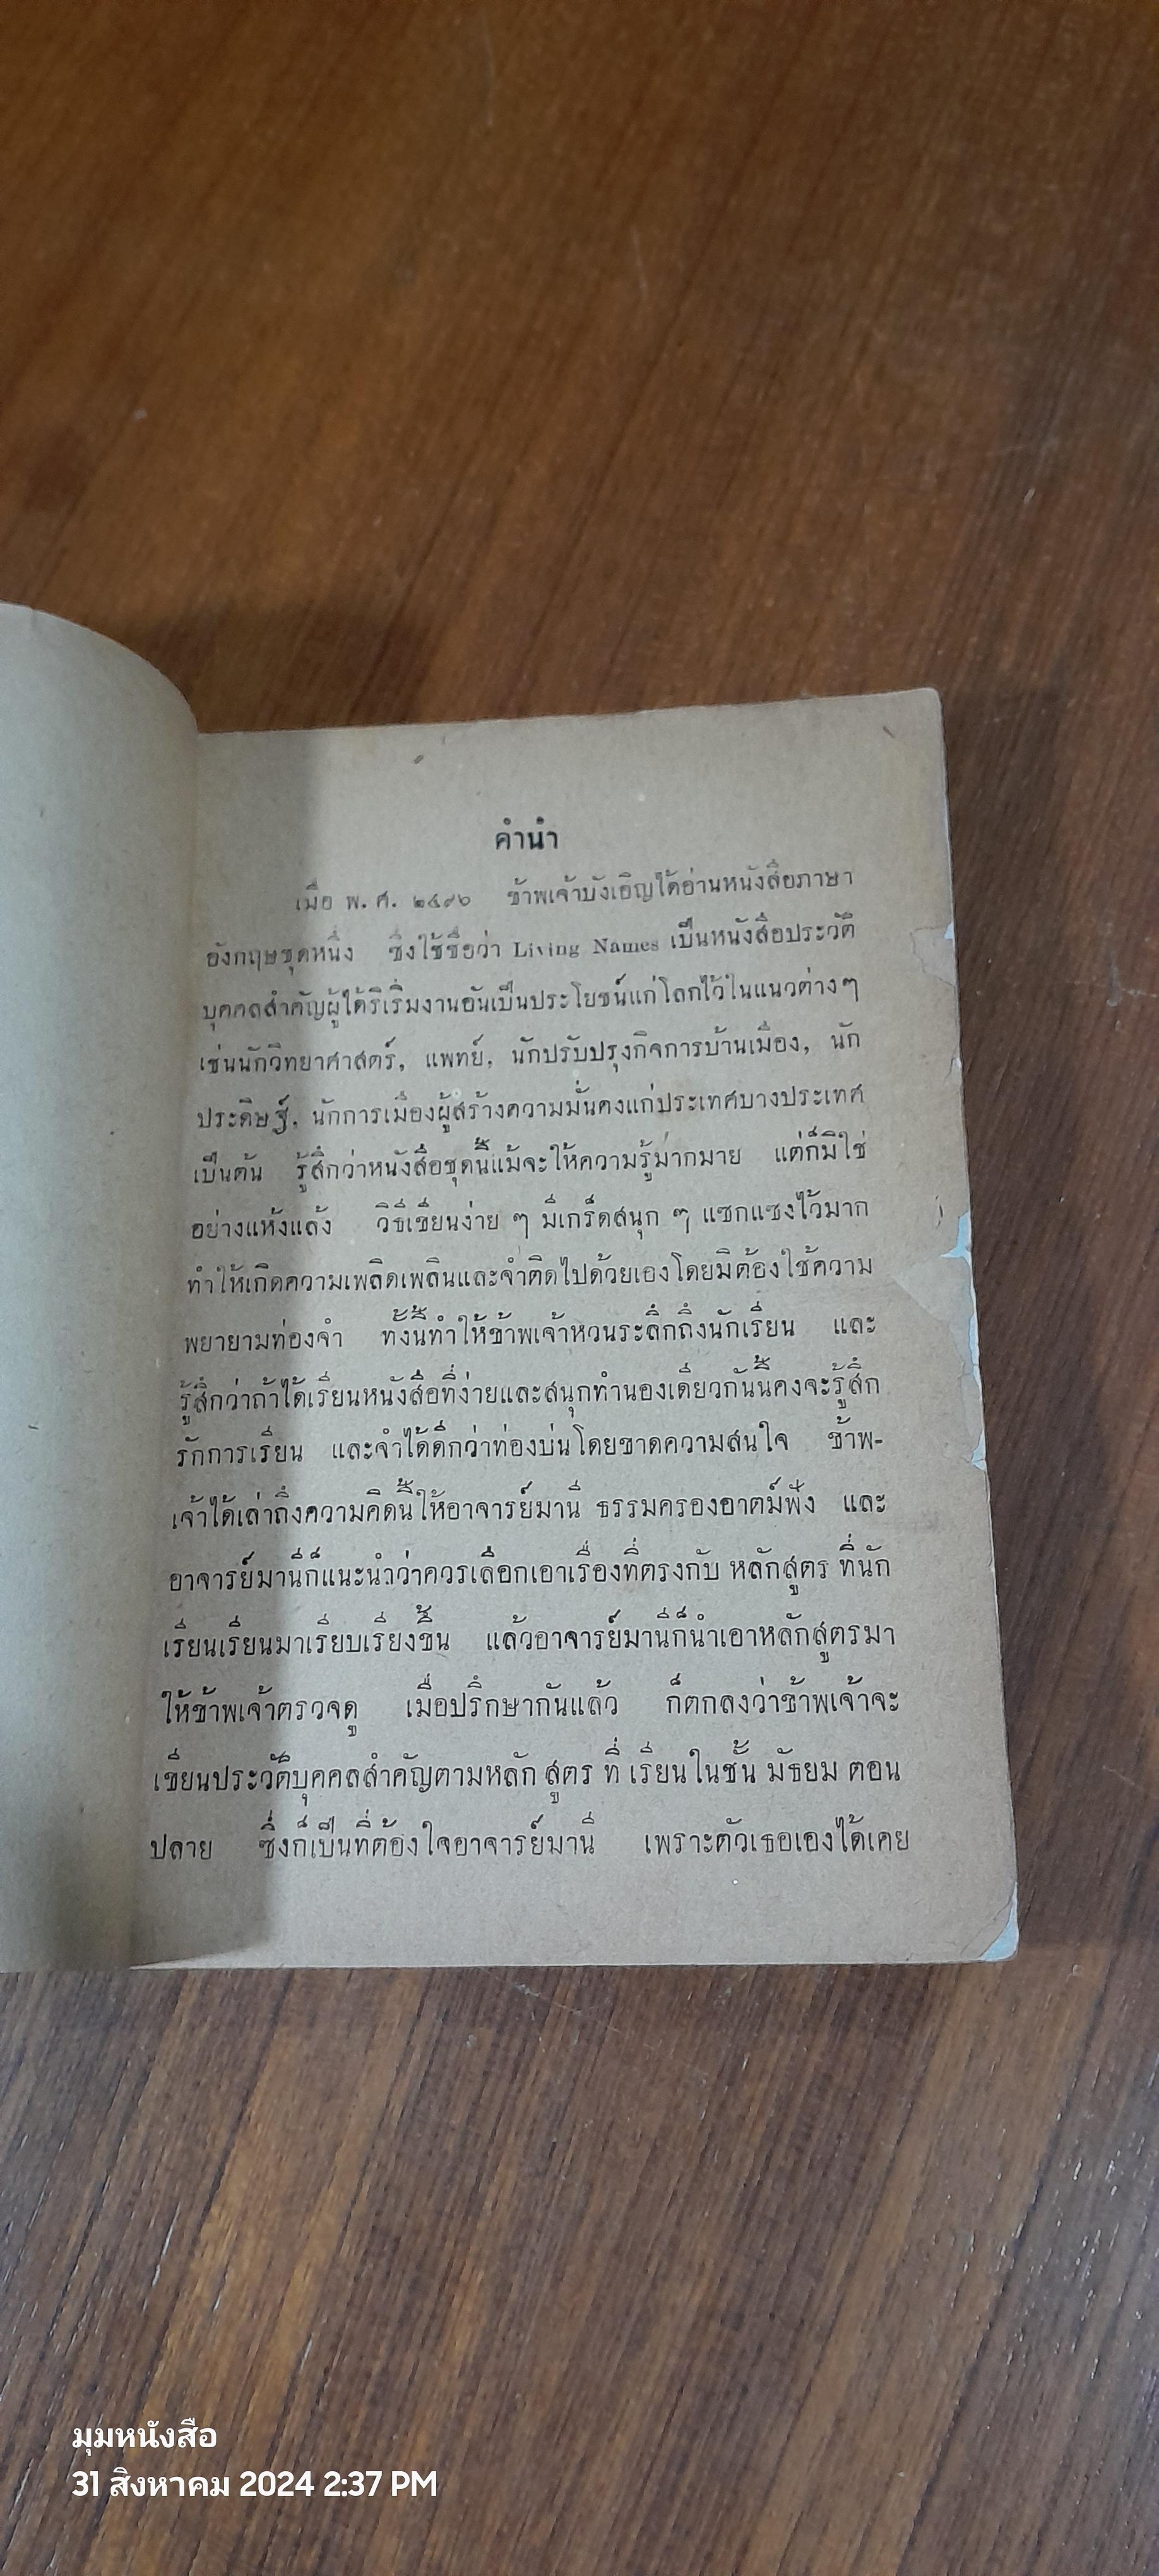 คำนำ
เมื่อ พ. ศ. ๒๔๙๖ ข้าพเจ้าบังเอิญได้อ่านหนังสือภาษา
อังกฤษชุดหนึ่ง ซึ่งใช้ชื่อว่า Living Names เป็นหนังสือประวัติ
บุคคลสำคัญผู้ได้ริเริ่มงานอันเป็นประโยชน์แก่โลกไว้ในแนวต่างๆ
เช่นนักวิทยาศาสตร์, แพทย์, นักปรับปรุงกิจการบ้านเมือง, นัก
ประดิษฐ์, นักการเมืองผู้สร้างความมั่นคงแก่ประเทศบางประเทศ
เป็นต้น รู้สึกว่าหนังสือชุดนี้แม้จะให้ความรู้มากมาย แต่ก็มิใช่
อย่างแห้งแล้ง วิธีเขียนง่าย ๆ มีเกร็ดสนุก ๆ แซกแซงไว้มาก
ทำให้เกิดความเพลิดเพลินและจำติดไปด้วยเองโดยมิต้องใช้ความ
พยายามท่องจำ ทั้งนี้ทำให้ข้าพเจ้าหวนระลึกถึงนักเรียน และ
รู้สึกว่าถ้าได้เรียนหนังสือที่ง่ายและสนุกทำนองเดียวกันนี้คงจะรู้สึก
รักการเรียน และจำได้ดีกว่าท่องบ่นโดยขาดความสนใจ ข้าพ-
เจ้าได้เล่าถึงความคิดนี้ให้อาจารย์มานี ธรรมครองอาตม์ฟัง และ
อาจารย์มานีก็แนะนำว่าควรเลือกเอาเรื่องที่ตรงกับ หลักสูตร ที่นัก
เรียนเรียนมาเรียบเรียงขึ้น แล้วอาจารย์มานีก็นำเอาหลักสูตรมา
ให้ข้าพเจ้าตรวจดู เมื่อปรึกษากันแล้ว ก็ตกลงว่าข้าพเจ้าจะ
เขียนประวัติบุคคลสำคัญตามหลัก สูตร ที่ เรียนในชั้น มัธยม ตอน
ปลาย ซึ่งก็เป็นที่ต้องใจอาจารย์มานี เพราะตัวเธอเองได้เคย
มุมหนังสือ
31 สิงหาคม 2024 2:37 PM